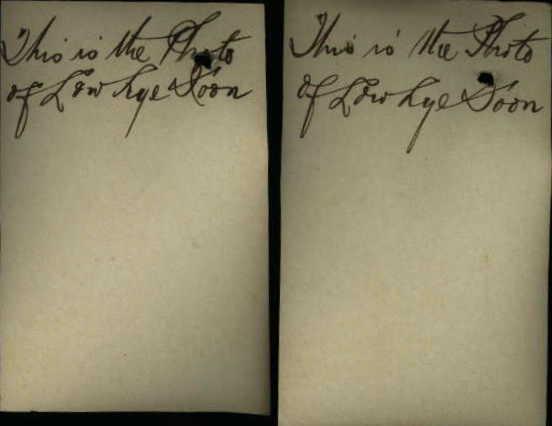 This is the Photo
of Low Kye Soon
This is the Photo
of Low Kye Soon